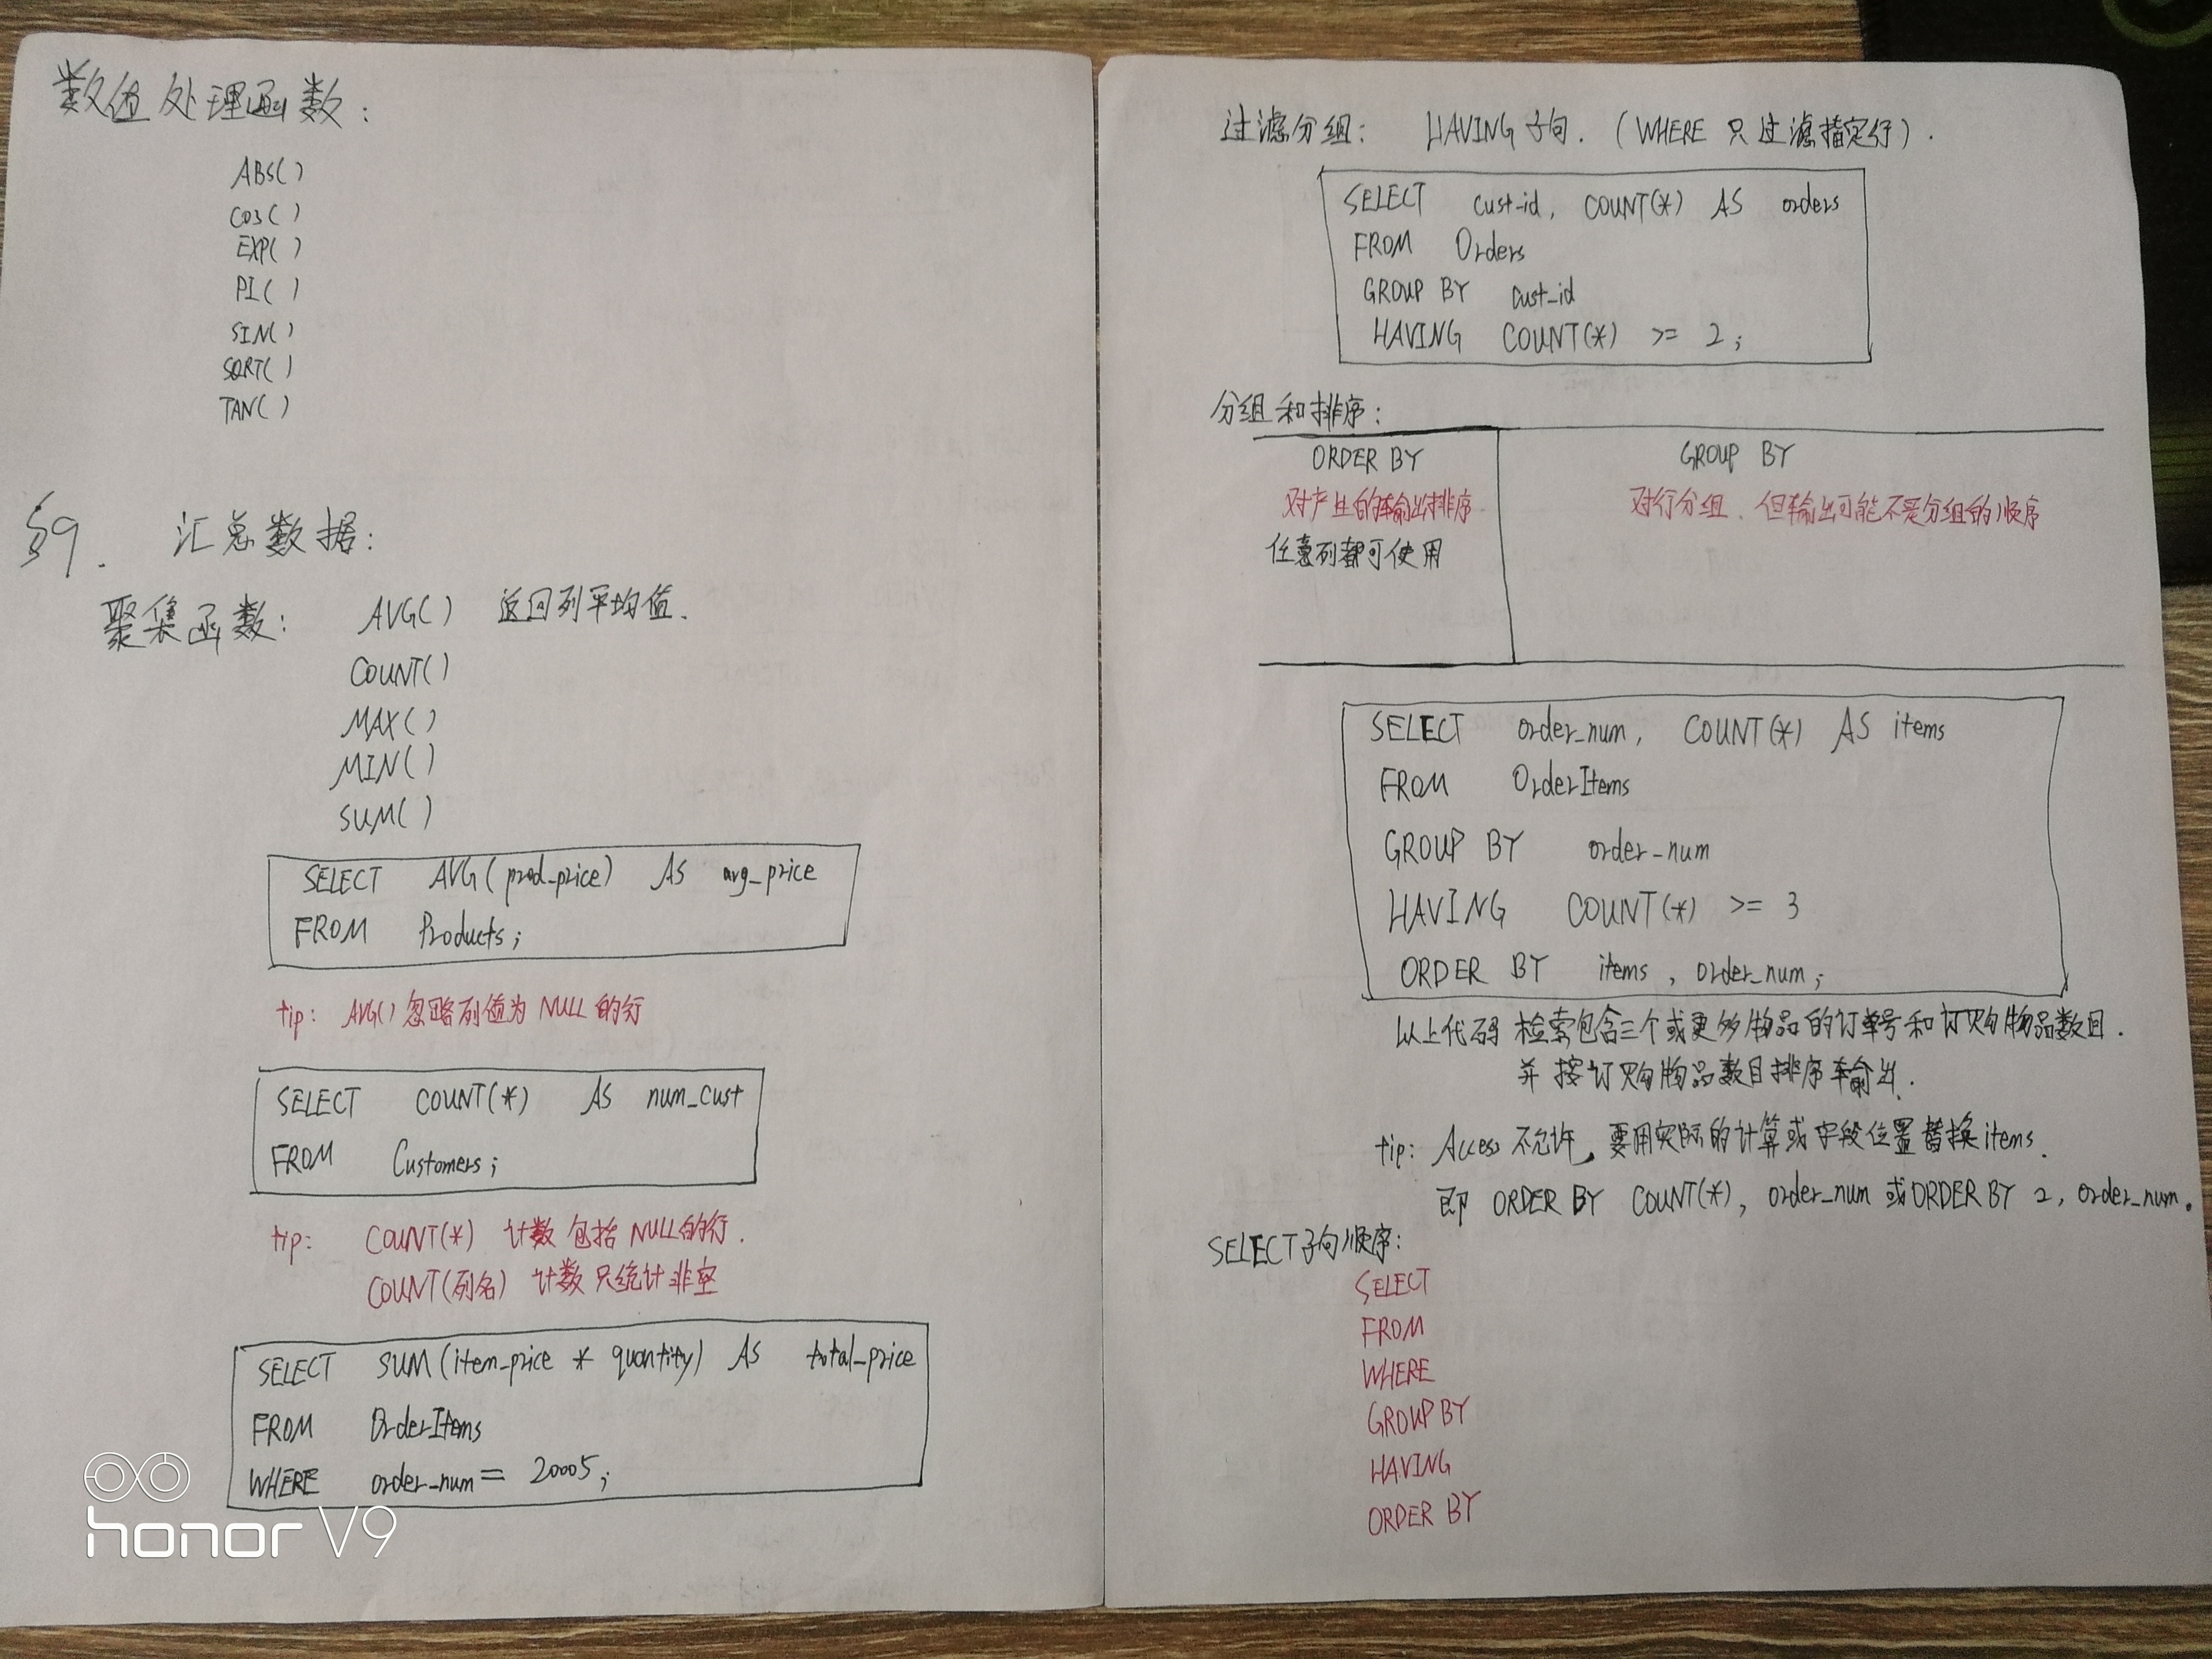 数值处理函数：
ABS()
COS()
EXP()
PI()
SIN()
SQRT()
TAN()
§9. 汇总数据：
聚集函数： AVG() 返回列平均值.
COUNT()
MAX()
MIN()
SUM()
SELECT AVG(prod_price) AS avg_price
FROM Products;
tip: AVG()忽略列值为NULL的行
SELECT COUNT(*) AS num_cust
FROM Customers;
tip: COUNT(*) 计数包括NULL的行.
COUNT(列名) 计数只统计非空
SELECT SUM(item_price * quantity) AS total_price
FROM OrderItems
WHERE order_num = 20005;
honor V9
过滤分组： HAVING子句.（WHERE只过滤指定行）.
SELECT cust_id, COUNT(*) AS orders
FROM Orders
GROUP BY cust_id
HAVING COUNT(*) >= 2;
分组和排序：
ORDER BY GROUP BY
对产生的输出排序 对行分组、但输出可能不是分组的顺序
任意列都可使用
SELECT order_num, COUNT(*) AS items
FROM OrderItems
GROUP BY order_num
HAVING COUNT(*) >= 3
ORDER BY items, order_num;
以上代码检索包含三个或更多物品的订单号和订购物品数目.
并按订购物品数目排序输出.
tip: Access不允许，要用实际的计算或字段位置替换items.
即 ORDER BY COUNT(*), order_num 或ORDER BY 2, order_num.
SELECT子句顺序：
SELECT
FROM
WHERE
GROUP BY
HAVING
ORDER BY